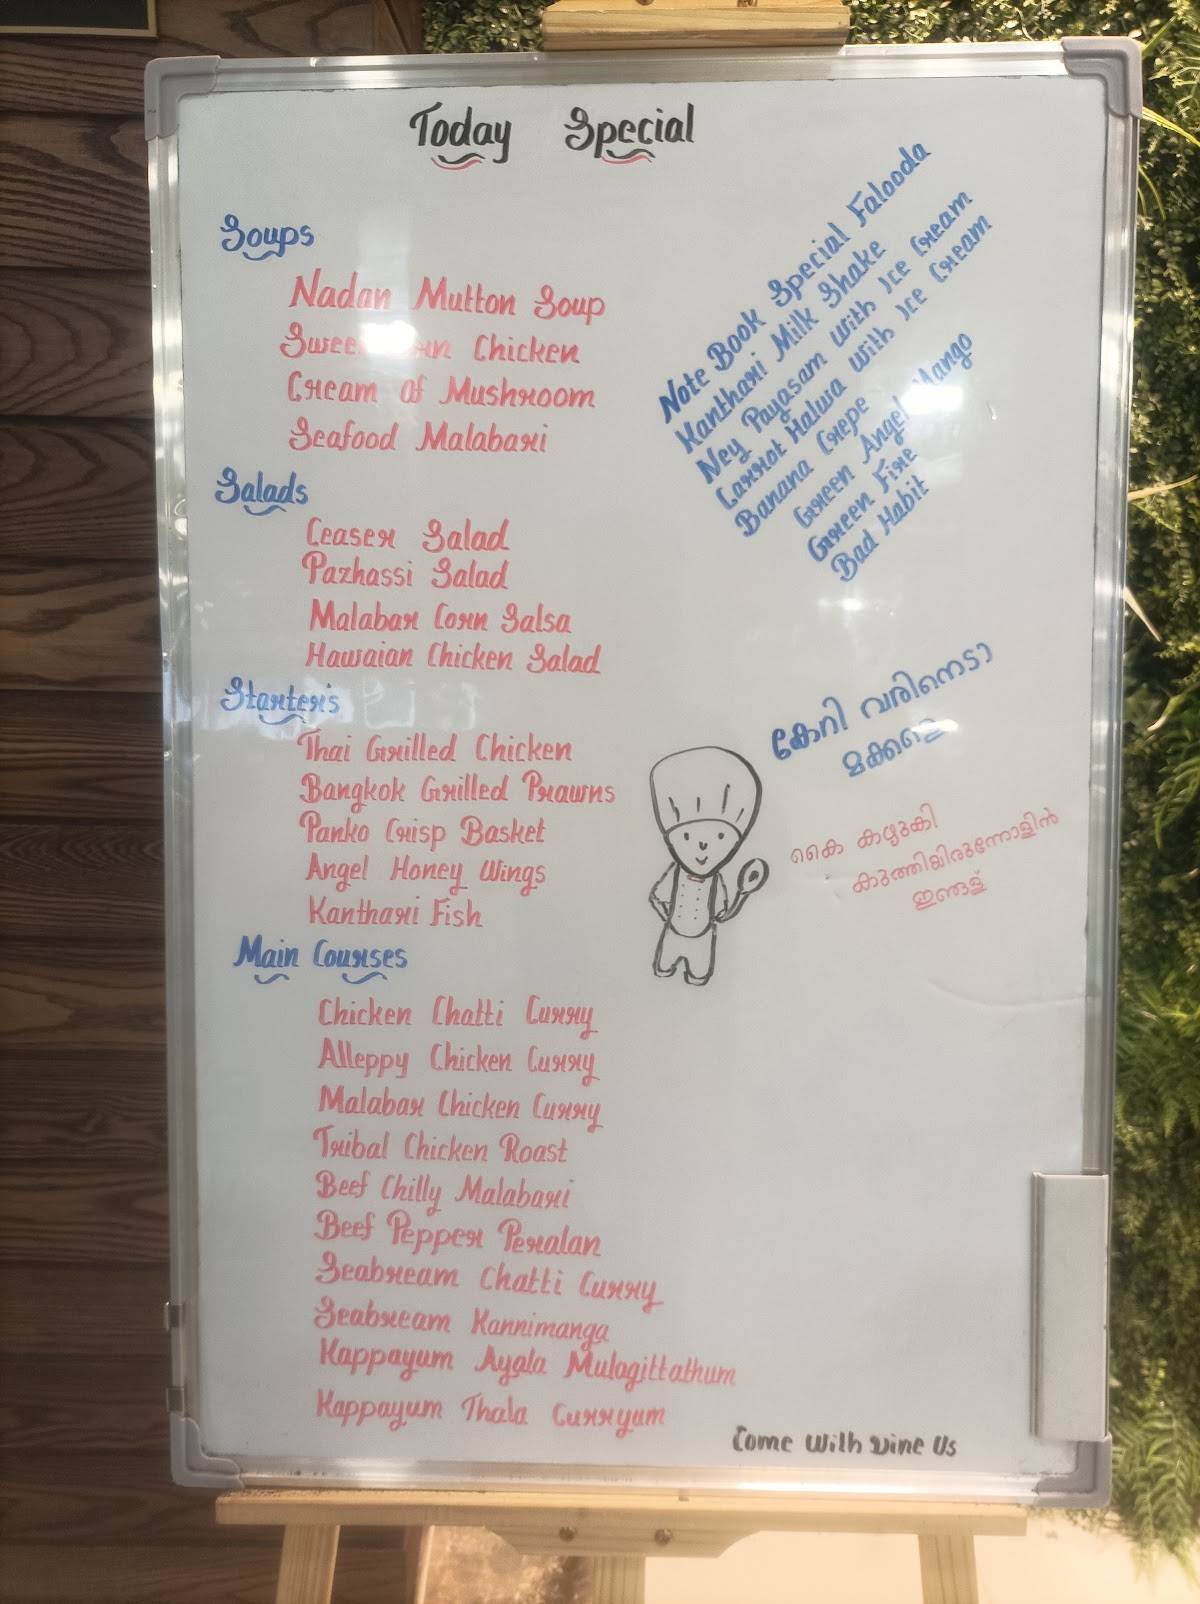 Today Special
Soups
Nadan Mutton Soup
Sweet Corn Chicken
Cream of Mushroom
Seafood Malabari
Salads
Ceaser Salad
Pazhassi Salad
Malabar Corn Salsa
Hawaian Chicken Salad
Starter's
Thai Grilled Chicken
Bangkok Grilled Prawns
Panko Crisp Basket
Angel Honey Wings
Kanthari Fish
Main Courses
Chicken Chatti Curry
Alleppy Chicken Curry
Malabar Chicken Curry
Tribal Chicken Roast
Beef Chilly Malabari
Beef Pepper Peralan
Seabream Chatti Curry
Seabream Kannimanga
Kappayum Ayala Mulagittathum
Kappayum Thala Curryum
Note Book Special Falooda
Kanthari Milk Shake
Ney Payasam with Ice Cream
Carrot Halwa with Ice Cream
Banana Crepe
Green Angel Mango
Green Fire
Bad Habit
കേറി വരിനെടാ
മക്കളെ
കൈ കഴുകി
കുത്തിയിരുന്നോളിൻ
ഇങ്ങള്
Come With Dine Us